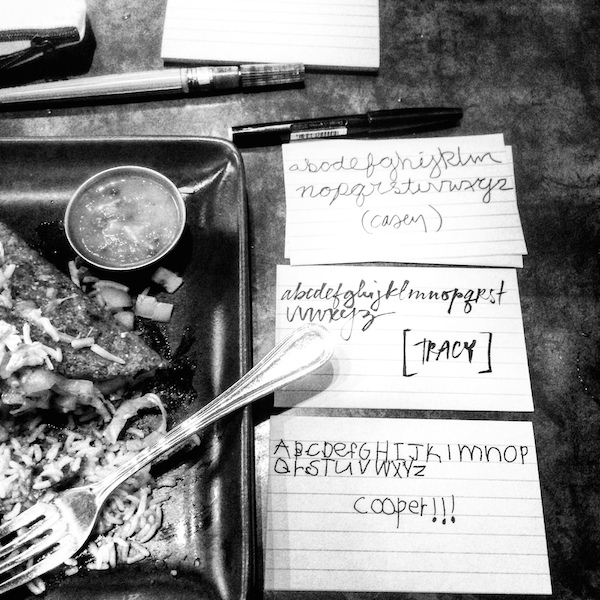 abcdefghijklm
nopqrstuvwxyz
(casey)
abcdefghijklmnopqrst
uvwxyz
[TRACY]
ABCDEFGHIJKlmnOP
QrSTUVWXYZ
cooper!!!